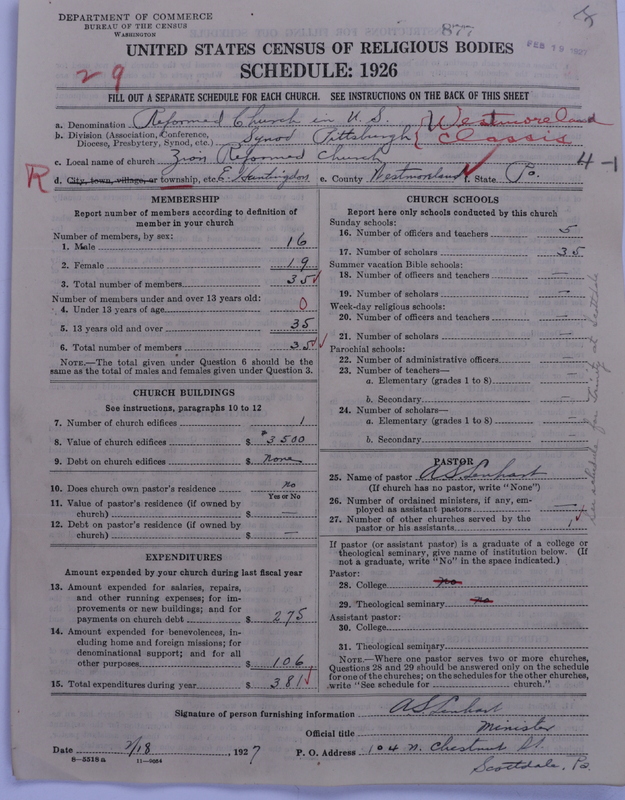 DEPARTMENT OF COMMERCE
BUREAU OF THE CENSUS
WASHINGTON
877
FEB 19 1927
UNITED STATES CENSUS OF RELIGIOUS BODIES
29
SCHEDULE: 1926
FILL OUT A SEPARATE SCHEDULE FOR EACH CHURCH. SEE INSTRUCTIONS ON THE BACK OF THIS SHEET
a. Denomination Reformed Church in U.S.
b. Division (Association, Conference, Diocese, Presbytery, Synod, etc.) Synod Pittsburgh { Westmoreland Classis
c. Local name of church Zion Reformed Church
4-1
R d. City, town, village, or township, etc. E. Huntingdon e. County Westmoreland f. State Pa.
MEMBERSHIP
Report number of members according to definition of
member in your church
Number of members, by sex:
1. Male 16
2. Female 19
3. Total number of members 35
Number of members under and over 13 years old:
4. Under 13 years of age 0
5. 13 years old and over 35
6. Total number of members 35
NOTE.—The total given under Question 6 should be
same as the total of males and females given under Question 3.
CHURCH BUILDINGS
See instructions, paragraphs 10 to 12
7. Number of church edifices 1
8. Value of church edifices $ 3500
9. Debt on church edifices $ none
10. Does church own pastor's residence no
Yes or No
11. Value of pastor's residence (if owned by
church) $ —
12. Debt on pastor's residence (if owned by
church) $ —
EXPENDITURES
Amount expended by your church during last fiscal year
13. Amount expended for salaries, repairs,
and other running expenses; for im-
provements or new buildings; and for
payments on church debt $ 275
14. Amount expended for benevolences, in-
cluding home and foreign missions; for
denominational support; and for all
other purposes $ 106
15. Total expenditures during year $ 381
CHURCH SCHOOLS
Report here only schools conducted by this church
Sunday schools:
16. Number of officers and teachers 5
17. Number of scholars 35
Summer vacation Bible schools:
18. Number of officers and teachers —
19. Number of scholars —
Week-day religious schools:
20. Number of officers and teachers —
21. Number of scholars —
Parochial schools:
22. Number of administrative officers —
23. Number of teachers—
a. Elementary (grades 1 to 8) —
b. Secondary —
24. Number of scholars—
a. Elementary (grades 1 to 8) —
b. Secondary —
PASTOR
25. Name of pastor A S Lenhart
(If church has no pastor, write "None")
26. Number of ordained ministers, if any, em-
ployed as assistant pastors —
27. Number of other churches served by the
pastor or his assistants 1
If pastor (or assistant pastor) is a graduate of a college or
theological seminary, give name of institution below. (If
not a graduate, write "No" in the space indicated.)
Pastor:
28. College no
29. Theological seminary no
Assistant pastor:
30. College
31. Theological seminary
NOTE.—Where one pastor serves two or more churches,
Questions 28 and 29 should be answered only on the schedule
for one of the churches; on the schedules for the other churches,
write "See schedule for church."
see schedule for Trinity at Scottdale
Signature of person furnishing information A S Lenhart
Official title Minister
Date 2/18, 1927 P. O. Address 104 N. Chestnut St.
Scottdale, Pa.
8—5318 a 11—9064